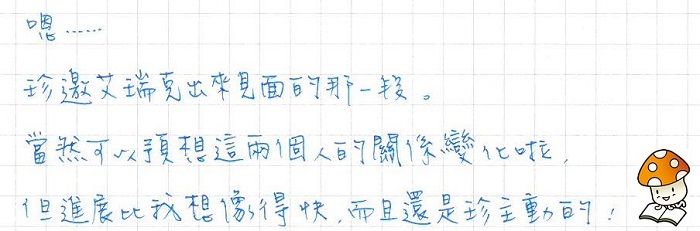 嗯……
珍邀艾瑞克出來見面的那一段。
當然可以預想這兩個人的關係變化啦，
但進展比我想像得快，而且還是珍主動的！